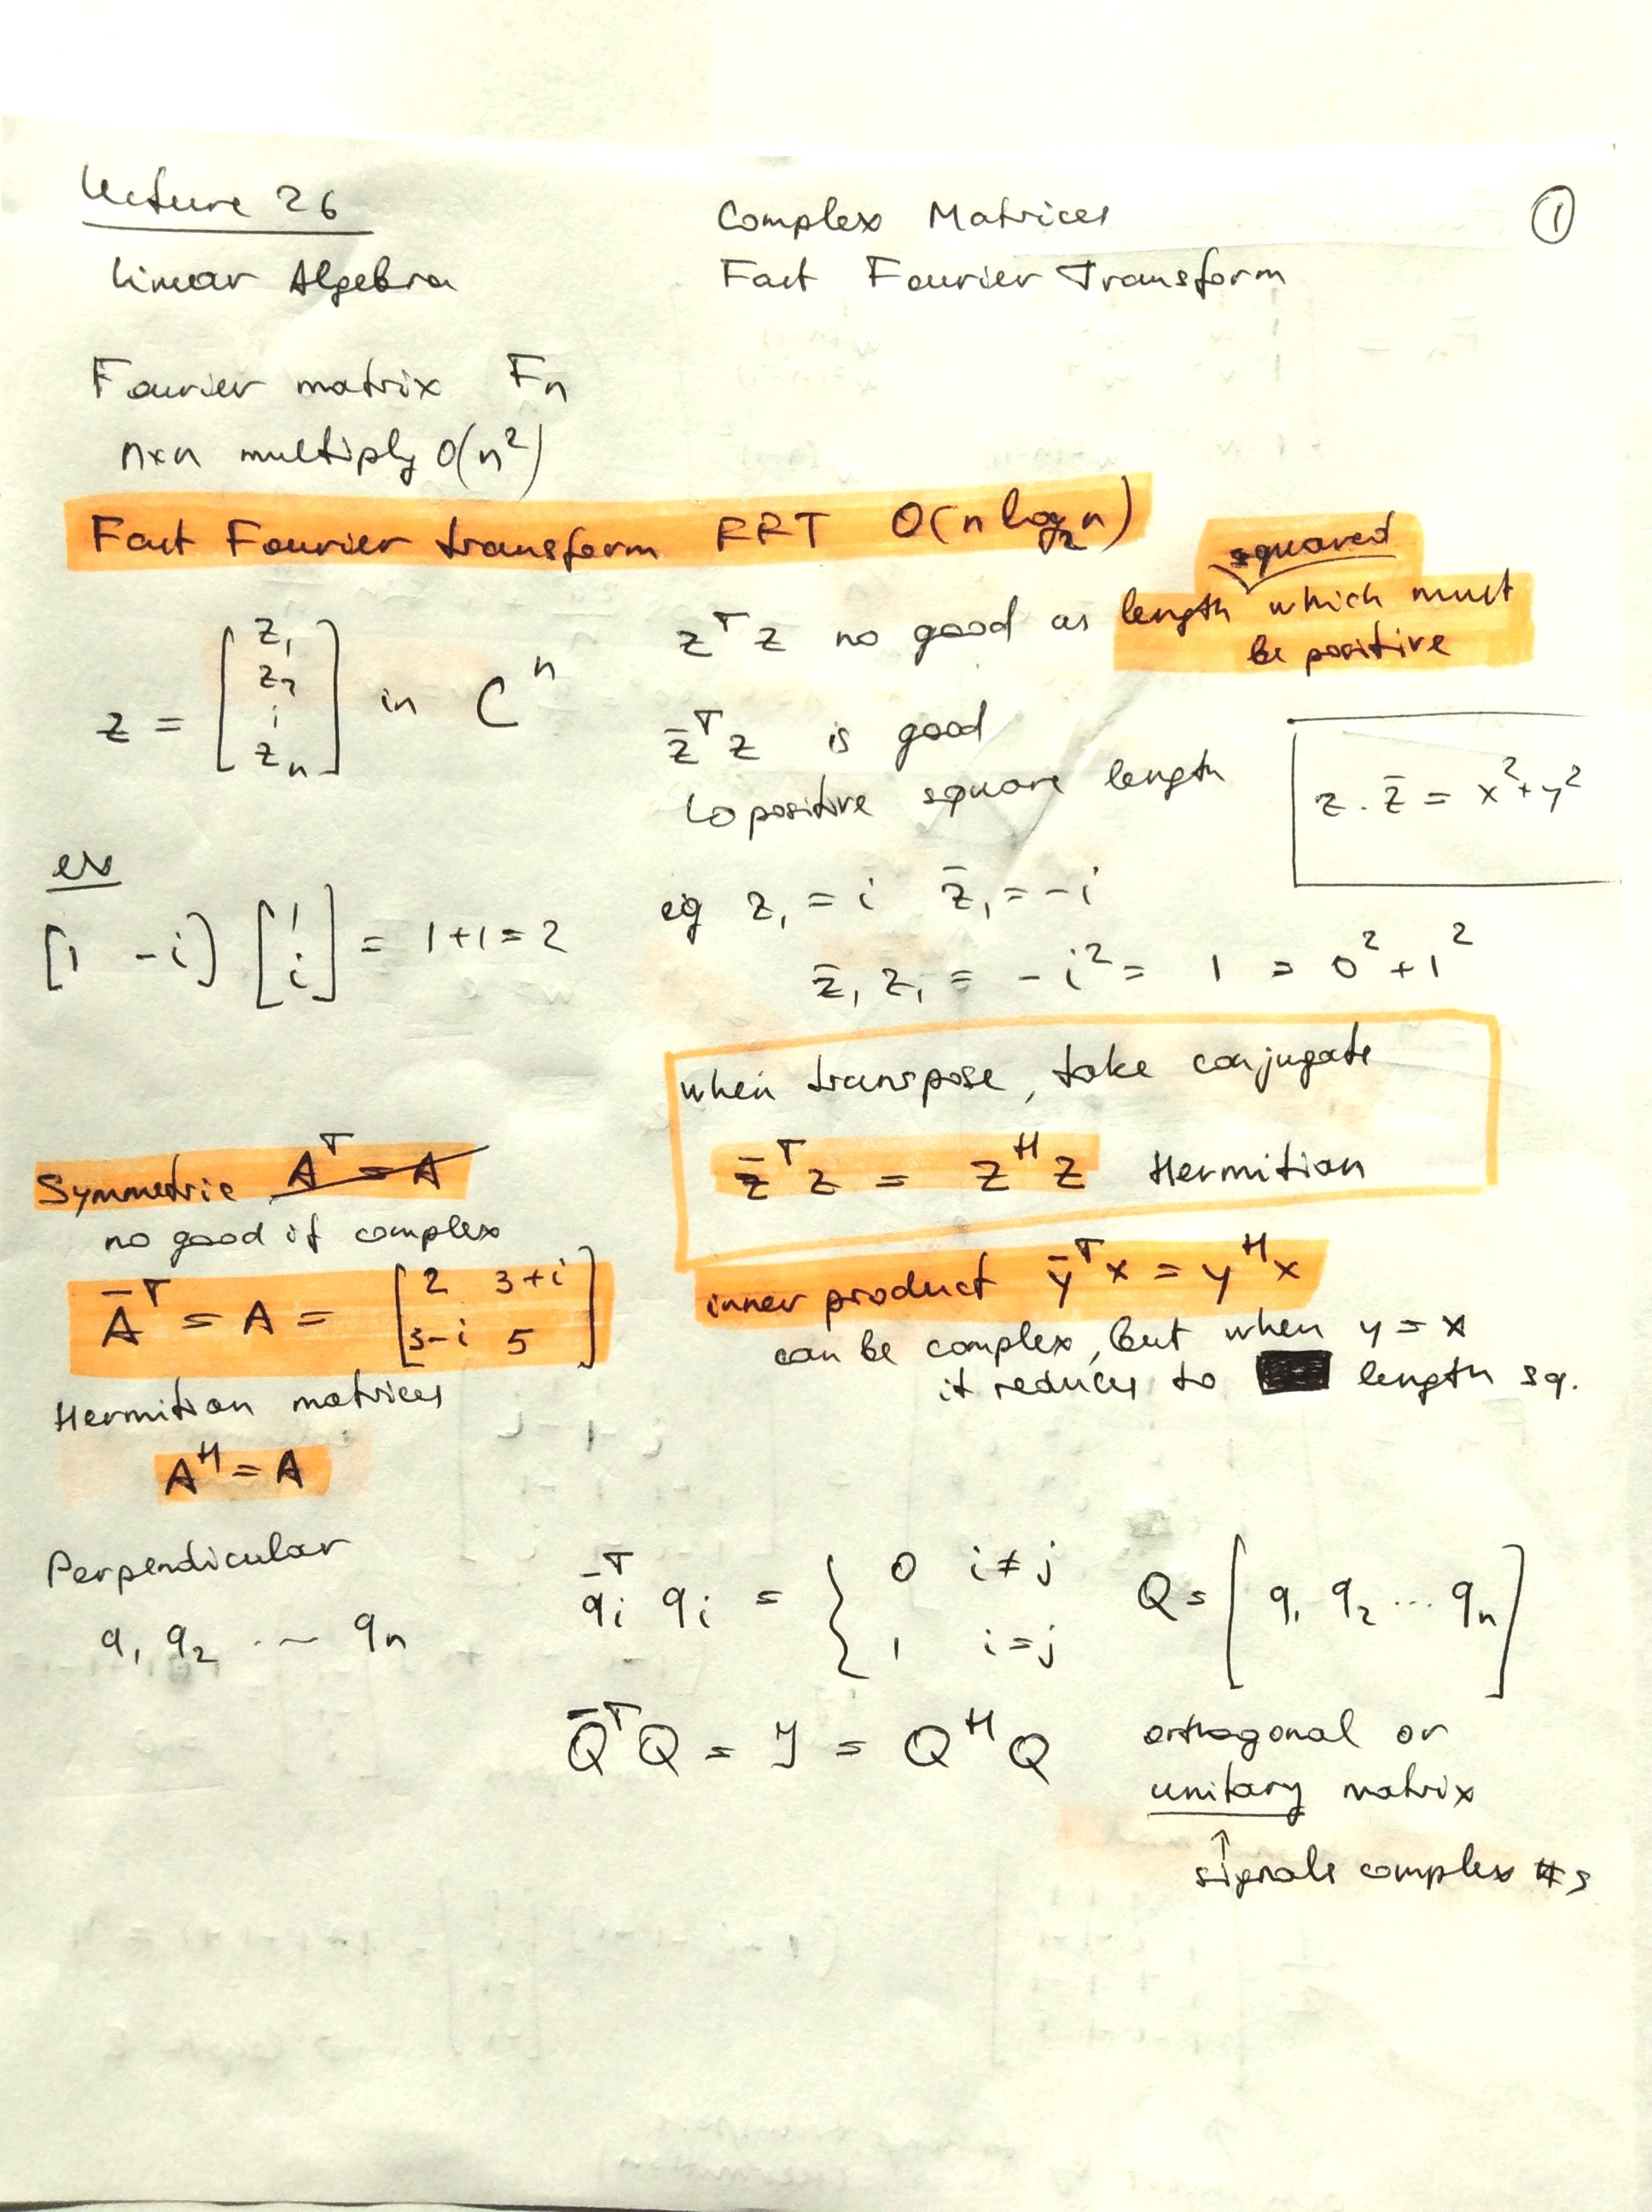 Lecture 26
Linear Algebra
Complex Matrices
Fast Fourier Transform
①
Fourier matrix Fₙ
n×n multiply O(n²)
Fast Fourier transform FFT O(n log₂n)
z = [z₁ z₂ ⋮ zₙ] in Cⁿ
zᵀz no good as length squared which must
be positive
z̄ᵀz is good
↳ positive square length
z · z̄ = x² + y²
ex
[1 -i] [1 i] = 1+1 = 2
eg z₁ = i z̄₁ = -i
z̄₁ z₁ = -i² = 1 = 0² + 1²
when transpose, take conjugate
z̄ᵀz = zᴴz Hermitian
Symmetric Aᵀ = A
no good if complex
Āᵀ = A = [2 3+i
3-i 5]
Hermitian matrices
Aᴴ = A
inner product ȳᵀx = yᴴx
can be complex, but when y = x
it reduces to length sq.
Perpendicular
q₁ q₂ ... qₙ
q̄ᵢᵀ qᵢ = { 0 i≠j
1 i=j
Q = [q₁ q₂ ... qₙ]
Q̄ᵀQ = I = QᴴQ
orthogonal or
unitary matrix
↑
signals complex #s